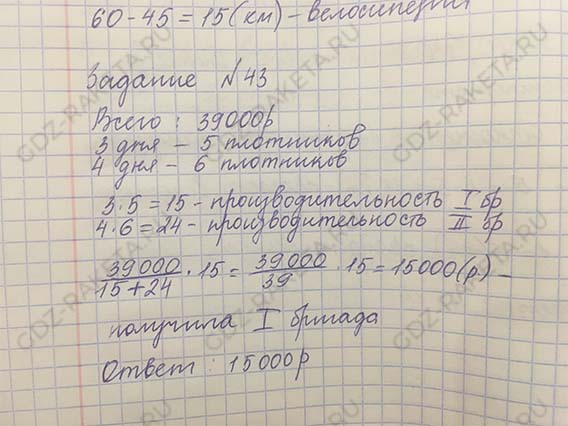 60 - 45 = 15 (км) - велосипедист
Задание № 43
Всего : 39000р
3 дня - 5 плотников
4 дня - 6 плотников
3 · 5 = 15 - производительность I бр
4 · 6 = 24 - производительность II бр
39000/15+24 · 15 = 39000/39 · 15 = 15000 (р.) -
получила I бригада
Ответ : 15000р
GDZ-RAKETA.RU